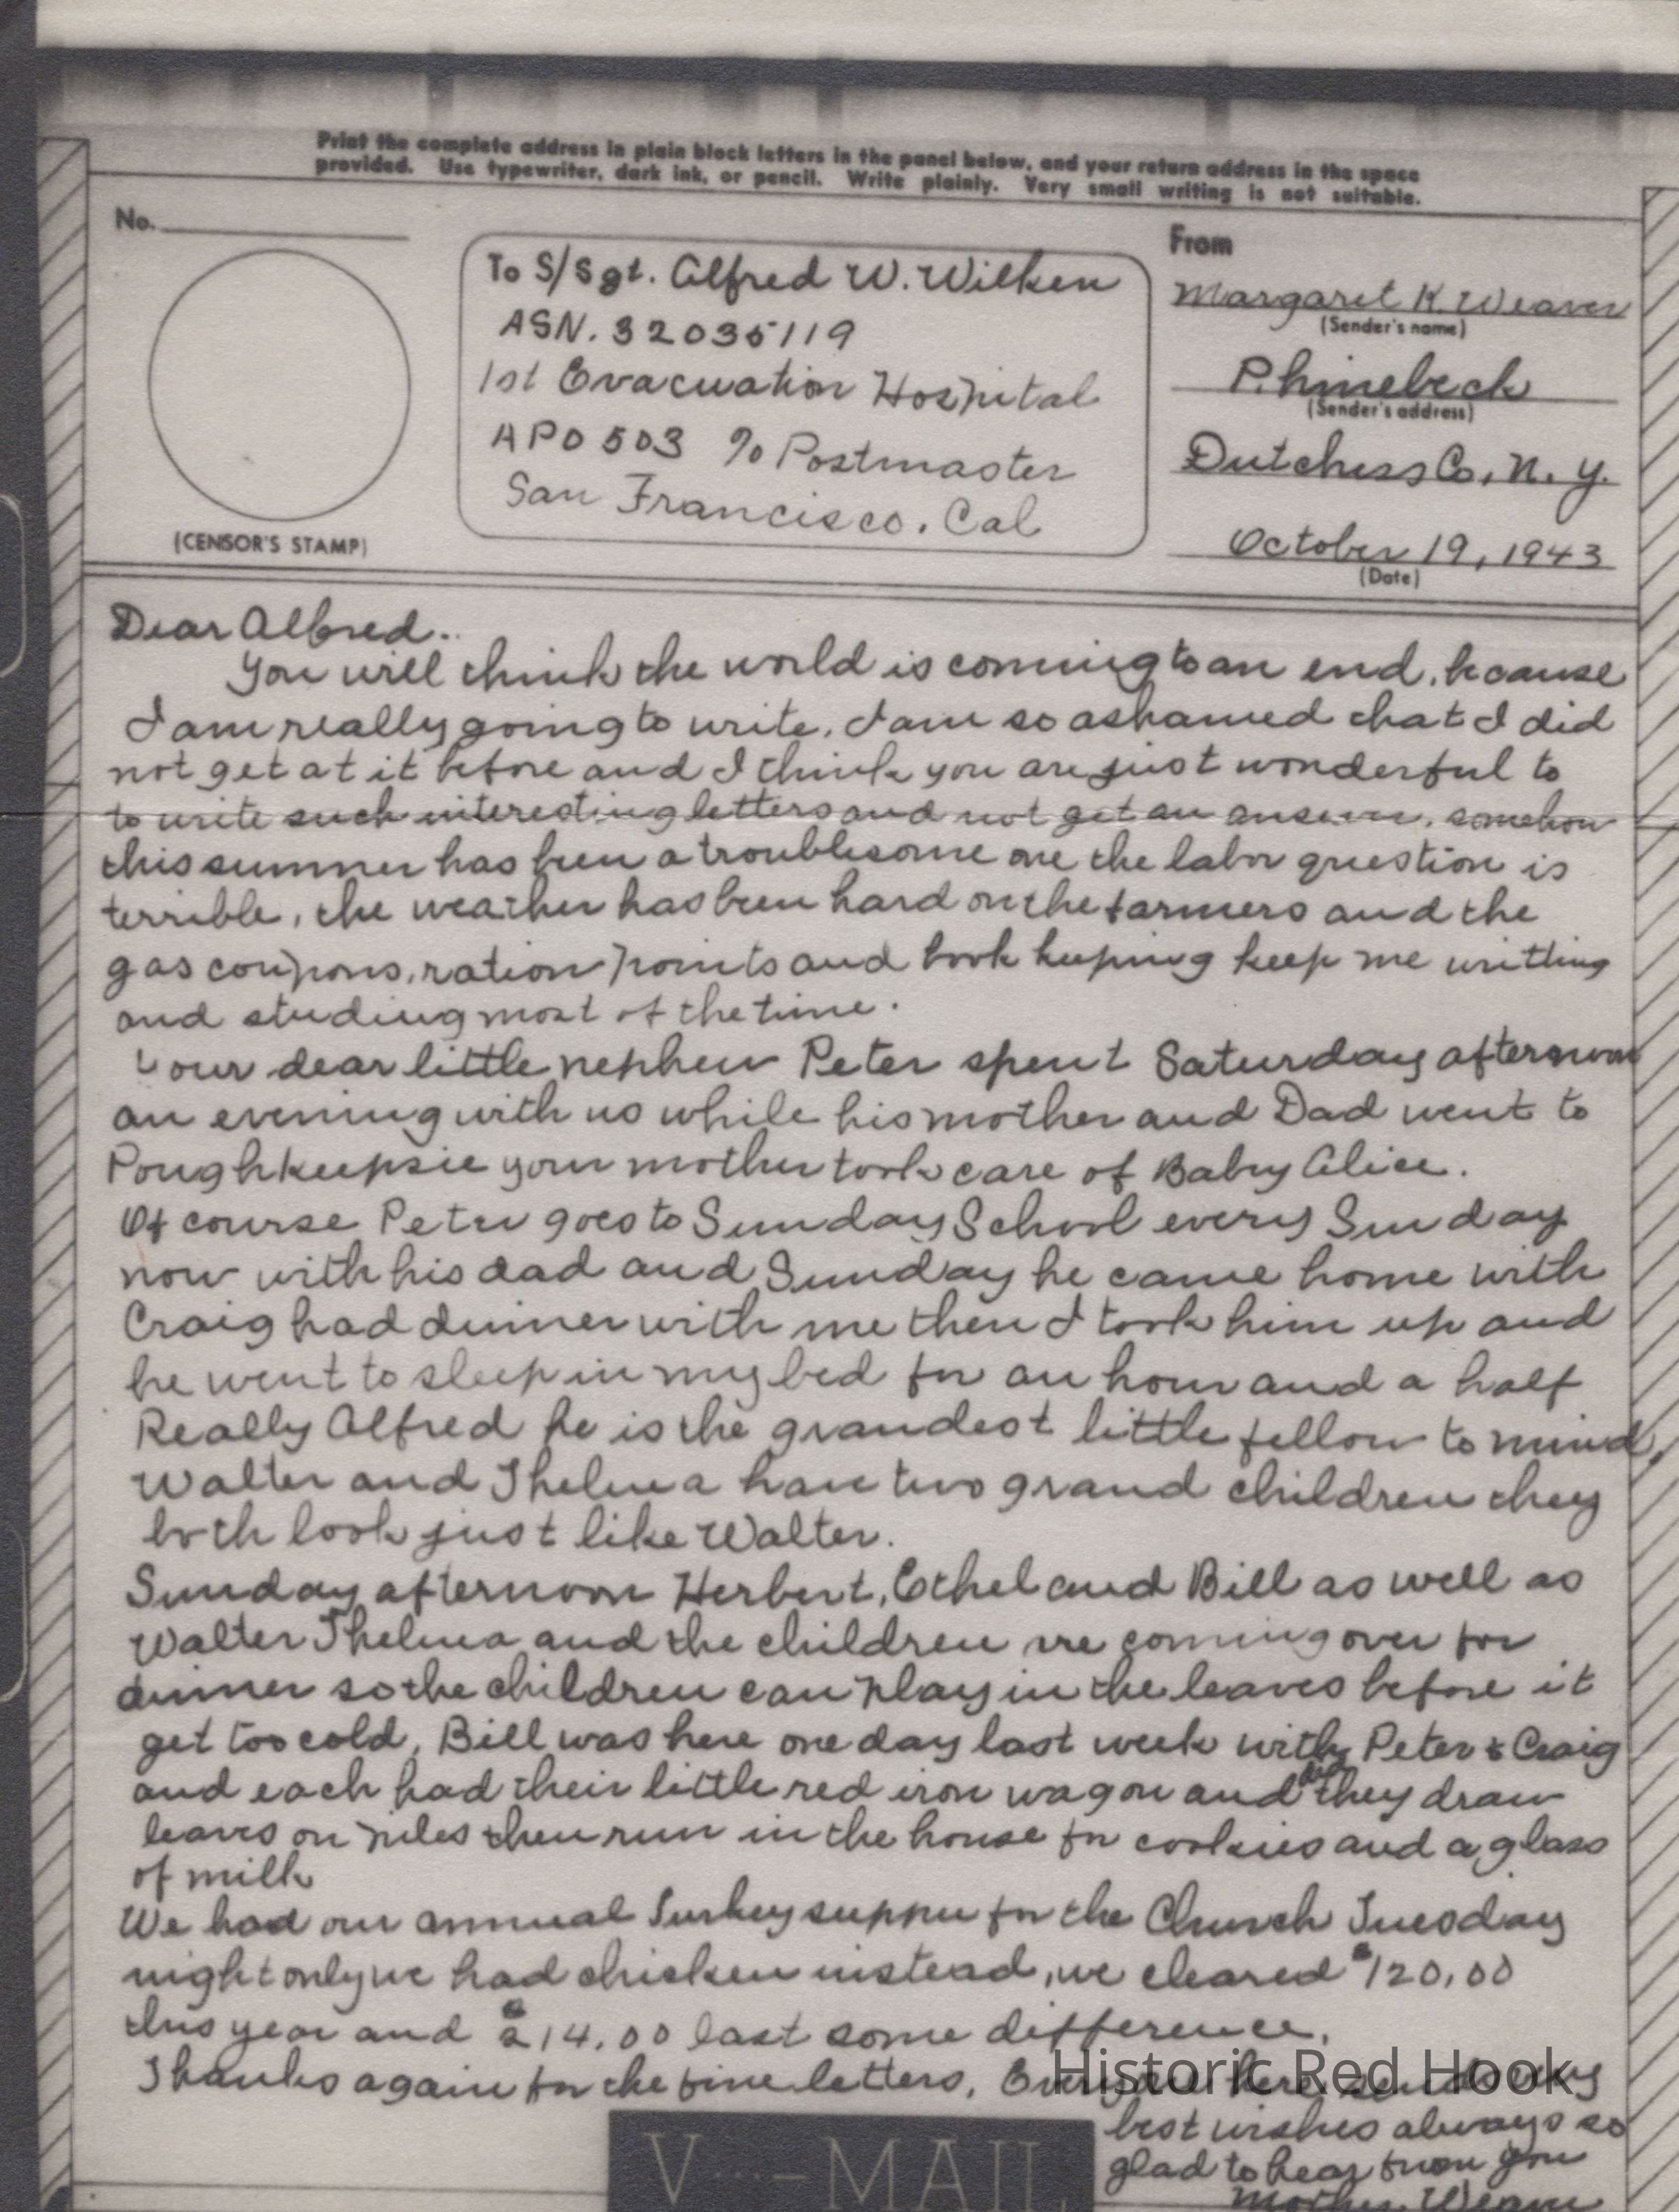 Print the complete address in plain block letters in the panel below, and your return address in the space
provided. Use typewriter, dark ink, or pencil. Write plainly. Very small writing is not suitable.
No.
(CENSOR'S STAMP)
To S/Sgt. Alfred W. Wilken
ASN. 32035119
1st Evacuation Hospital
APO 503 % Postmaster
San Francisco. Cal
From
Margaret K. Weaver
(Sender's name)
Rhinebeck
(Sender's address)
Dutchess Co, N. Y.
October 19, 1943
(Date)
Dear Alfred..
You will think the world is coming to an end, because
I am really going to write. I am so ashamed that I did
not get at it before and I think you are just wonderful to
to write such interesting letters and not get an answer, somehow
this summer has been a troublesome one the labor question is
terrible, the weather has been hard on the farmers and the
gas coupons, ration points and book keeping keep me writting
and studing most of the time.
Your dear little nephew Peter spent Saturday afternoon
an evening with us while his mother and Dad went to
Poughkeepsie your mother took care of Baby Alice.
Of course Peter goes to Sunday School every Sunday
now with his dad and Sunday he came home with
Craig had dinner with me then I took him up and
he went to sleep in my bed for an hour and a half
Really Alfred he is the grandest little fellow to mind,
Walter and Thelma have two grand children they
both look just like Walter.
Sunday afternoon Herbert, Ethel and Bill as well as
Walter Thelma and the children are coming over for
dinner so the children can play in the leaves before it
get too cold, Bill was here one day last week with Peter & Craig
and each had their little red iron wagon and did they draw
leaves on piles then run in the house for cookies and a glass
of milk
We had our annual Turkey supper for the Church Tuesday
night only we had chicken instead, we cleared $120.00
this year and $214.00 last some difference.
Thanks again for the fine letters, Everyone here sends
best wishes always so
glad to hear from you
Mother Weaver
V···-MAIL
Historic Red Hook